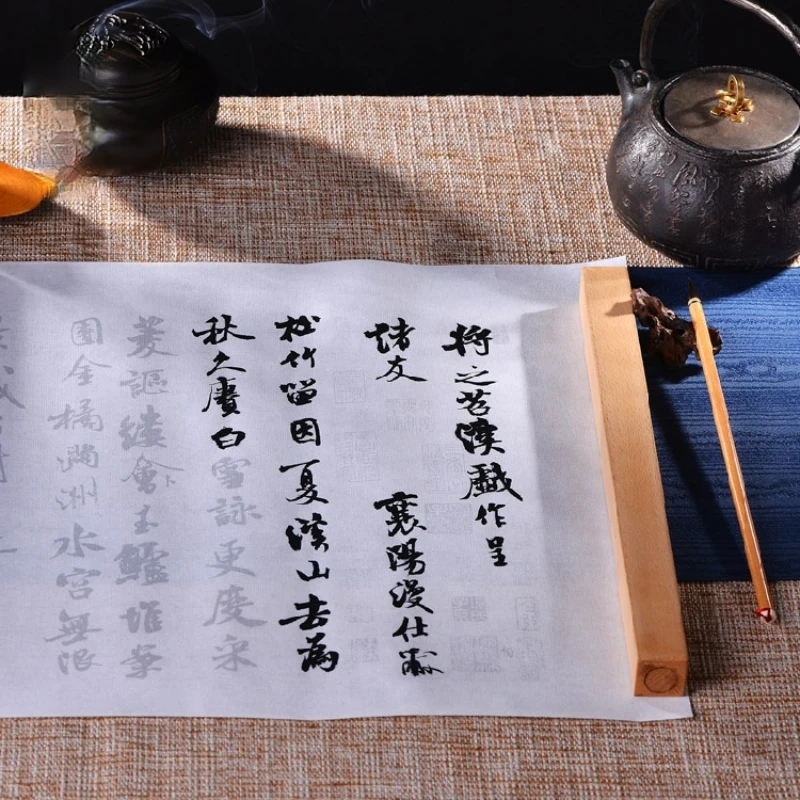 將之苕溪戲作呈
諸友 襄陽漫仕黻
松竹留因夏溪山去為
秋久賡白雪詠更度采
菱謳縷會玉鱸堆案
團金橘滿洲水宮無限